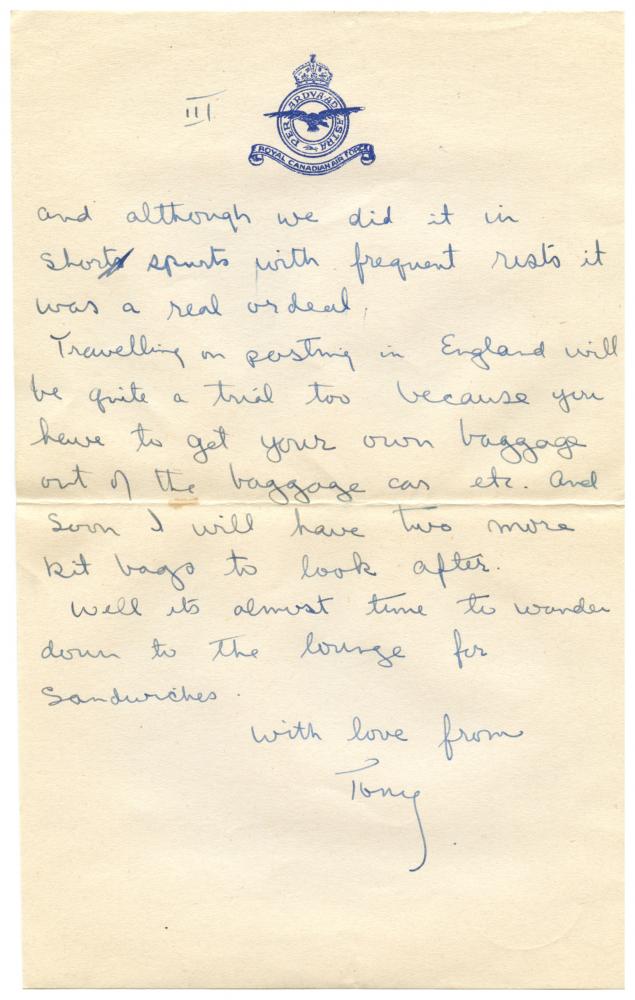 III
PER ARDVA AD ASTRA
ROYAL CANADIAN AIR FORCE
and although we did it in
short spurts with frequent rests it
was a real ordeal.
Travelling on posting in England will
be quite a trial too because you
have to get your own baggage
out of the baggage car etc. And
soon I will have two more
kit bags to look after.
Well its almost time to wander
down to the lounge for
sandwiches.
With love from
Tony